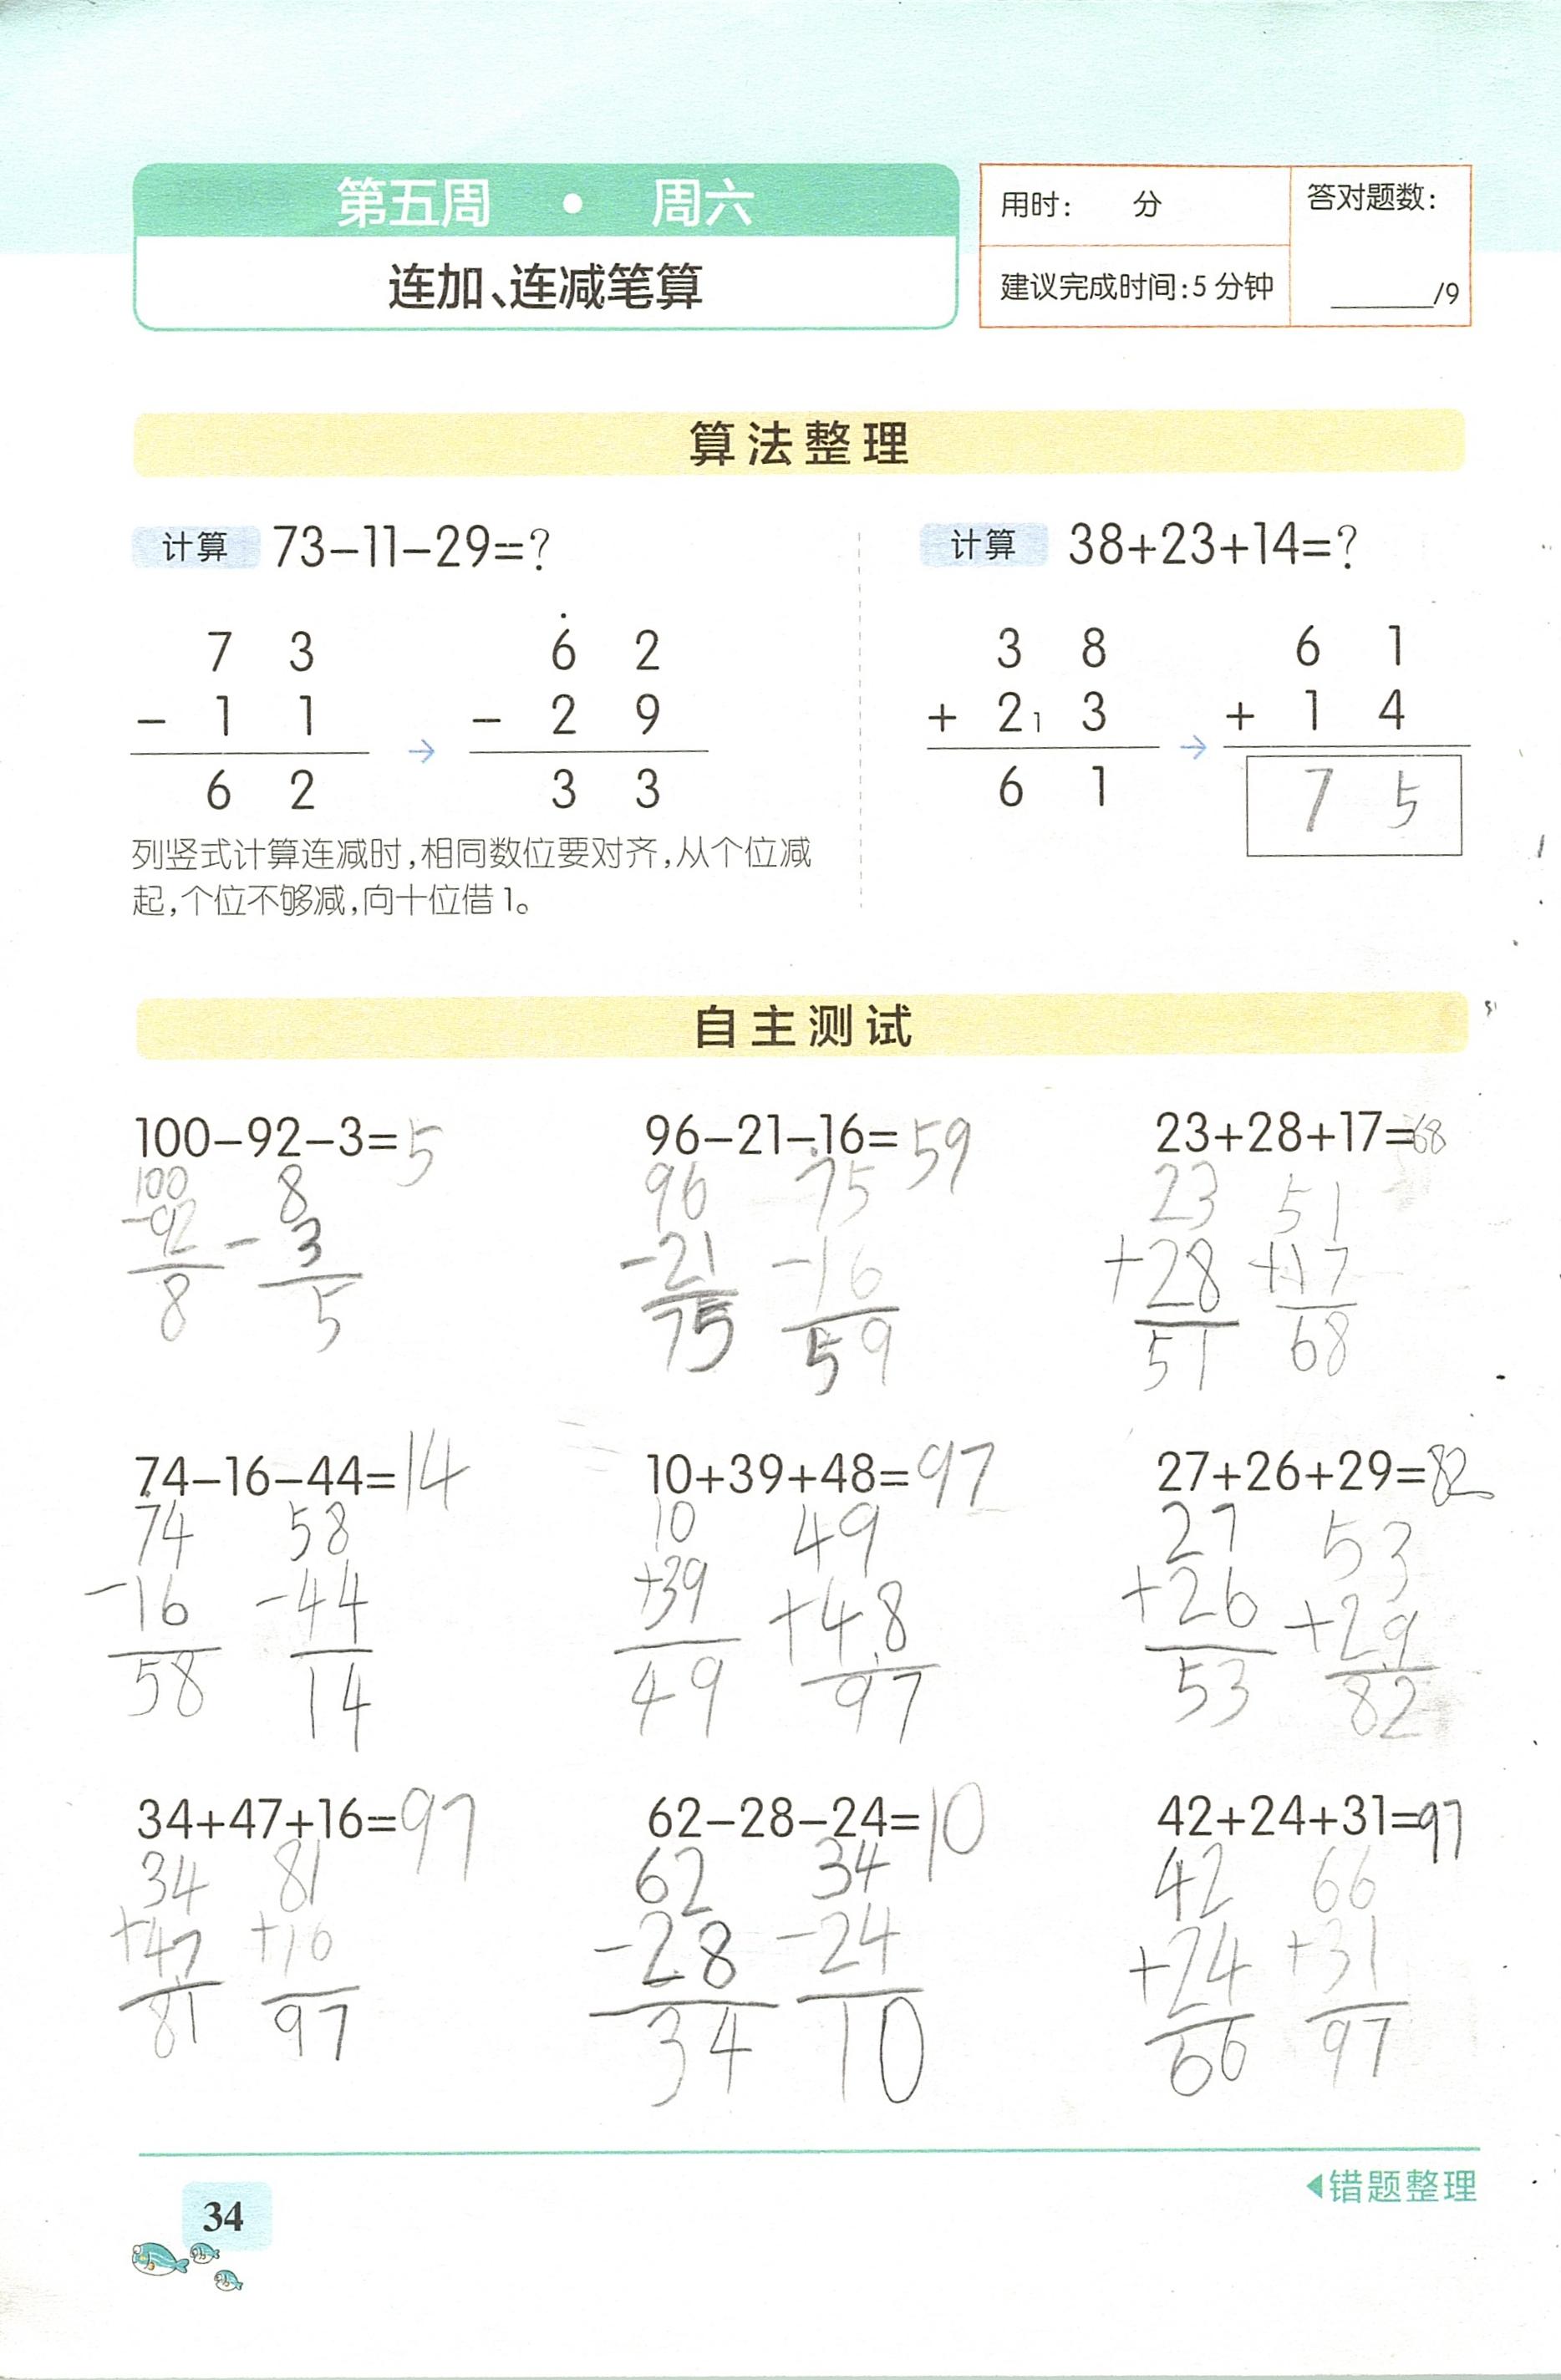 第五周 · 周六
连加、连减笔算
用时： 分
建议完成时间：5分钟
答对题数：
______/9
算法整理
计算 73-11-29=?
7 3
- 1 1
6 2
→
6 2
- 2 9
3 3
列竖式计算连减时，相同数位要对齐，从个位减
起，个位不够减，向十位借1。
计算 38+23+14=?
3 8
+ 2 1 3
6 1
→
6 1
+ 1 4
7 5
自主测试
100-92-3=5
100
-92
8
8
- 3
5
96-21-16=59
96
-21
75
75
-16
59
23+28+17=68
23
+28
51
51
+17
68
74-16-44=14
74
-16
58
58
-44
14
10+39+48=97
10
+39
49
49
+48
97
27+26+29=82
27
+26
53
53
+29
82
34+47+16=97
34
+47
81
81
+16
97
62-28-24=10
62
-28
34
34
-24
10
42+24+31=97
42
+24
66
66
+31
97
◀错题整理
34